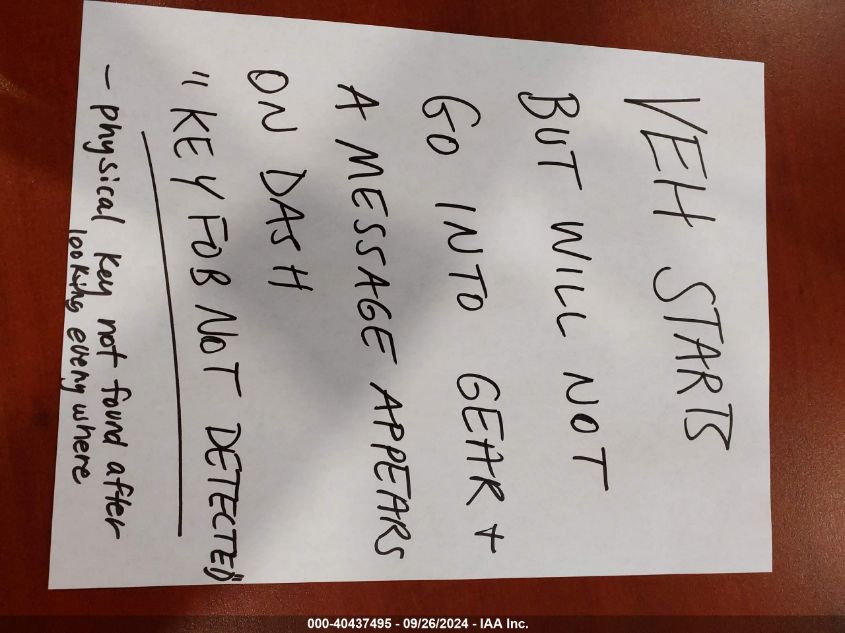 VEH STARTS
BUT WILL NOT
GO INTO GEAR +
A MESSAGE APPEARS
ON DASH
"KEY FOB NOT DETECTED"
- physical key not found after
looking everywhere
000-40437495 - 09/26/2024 - IAA Inc.